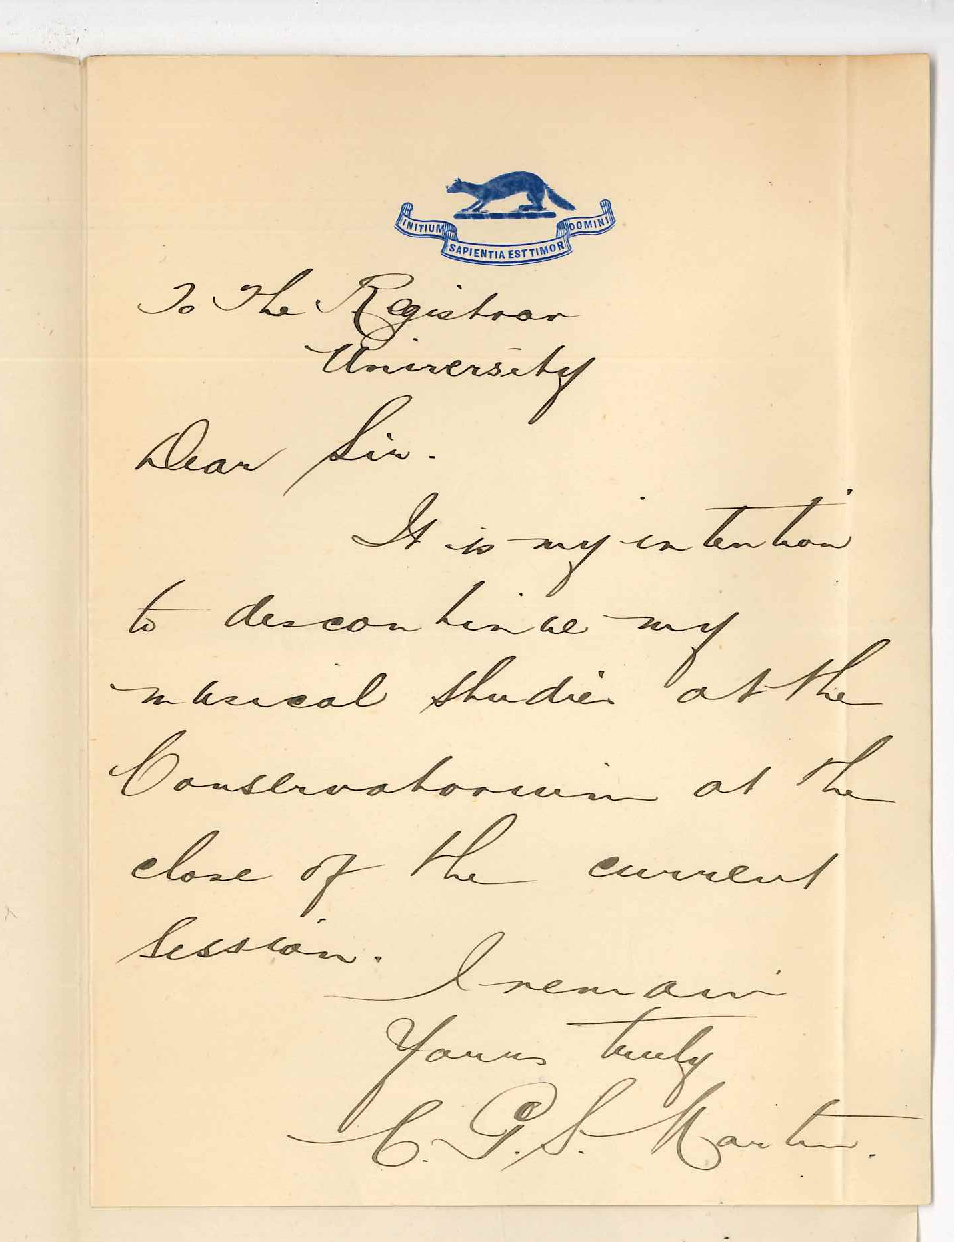 INITIUM SAPIENTIA EST TIMOR DOMINI
To The Registrar
University
Dear Sir.
It is my intention
to discontinue my
musical studies at the
Conservatorium at the
close of the current
Session.
I remain
Yours truly
C. G. S. Martin.